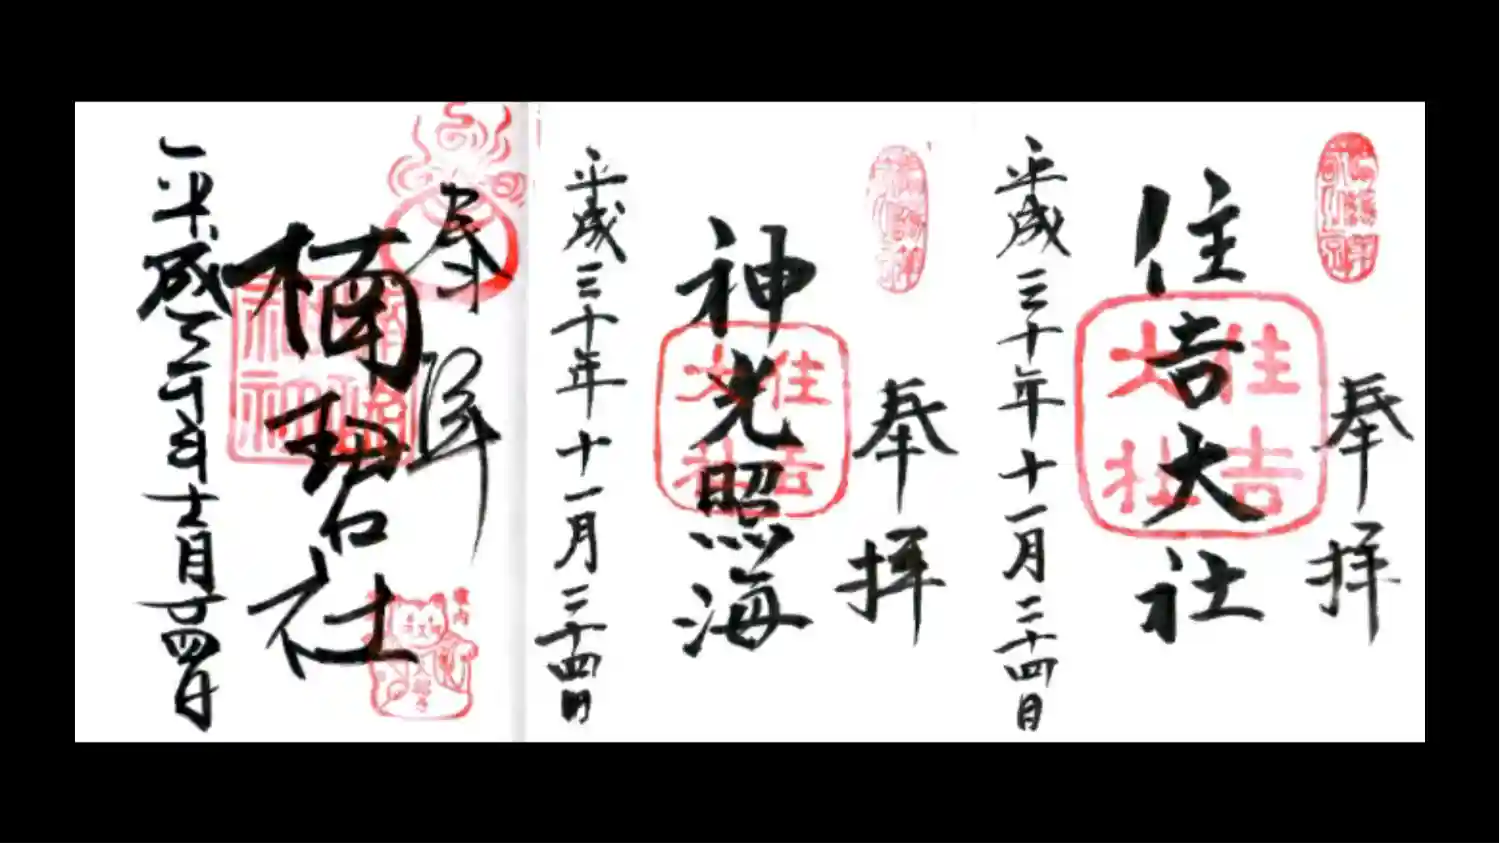 奉拝
住吉大社
平成三十年十一月二十四日
奉拝
神光照海
平成三十年十一月二十四日
奉拝
楠珺社
平成三十年十一月廿四日
住吉大社
住吉大社